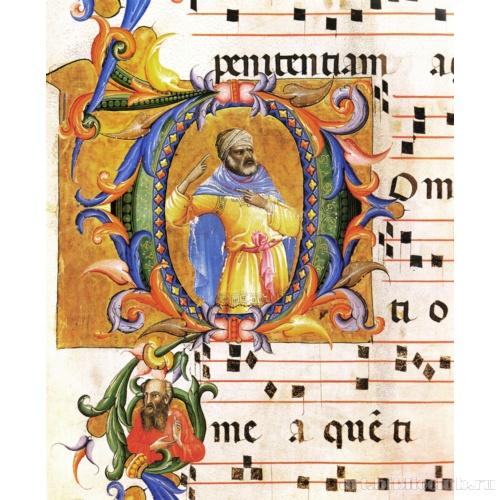 penitentiam ag
Om
ti o
me a quē ti